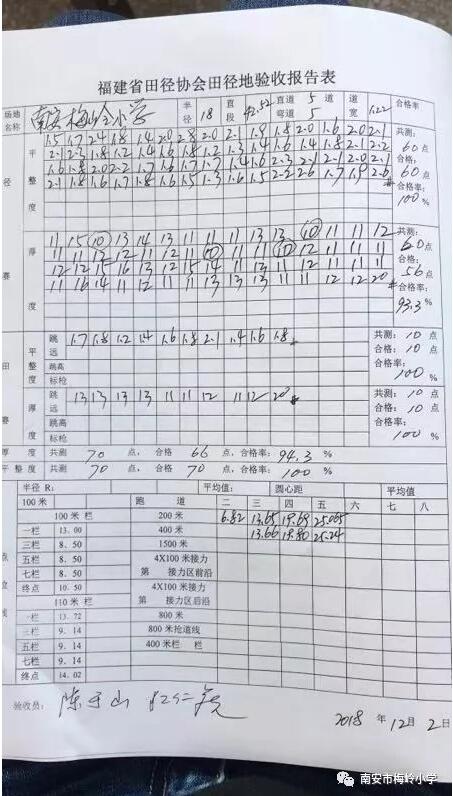 福建省田径协会田径地验收报告表
场地名称 南安梅岭小学 半径 18 直段 42.52 直道 5 道 弯道 5 道宽 1.22 合格率
径 平整度
1.5 1.7 2.4 1.8 1.4 2.0 2.8 2.0 2.1 1.9 1.8 2.0 1.6 2.0 2.1 共测:
2.1 2.3 1.8 1.2 1.4 1.6 1.8 1.2 1.3 1.4 1.6 1.4 1.8 2.1 2.2 60点
1.6 1.8 2.0 2.2 1.7 1.6 1.7 1.7 1.4 1.6 2.3 2.1 2.1 2.0 2.1 合格:
2.1 1.8 1.6 1.7 1.8 1.6 1.5 1.3 1.6 1.5 2.2 2.6 1.7 1.9 2.6 60点
合格率:
100%
赛 厚度
11 15 10 13 14 13 11 11 11 13 13 10 11 11 12 共测:
11 11 12 12 11 12 11 10 11 11 10 12 11 11 11 60点
12 12 15 16 13 12 15 14 11 13 11 12 11 11 11 合格:
11 16 14 11 12 11 11 13 13 13 11 11 12 12 20 56点
合格率:
93.3%
田 平整度 跳远 1.7 1.8 1.2 1.4 1.6 1.8 2.1 1.4 1.6 1.8 共测:10点
跳高 合格:10点
标枪 合格率:100%
赛 厚度 跳远 13 13 13 13 11 11 12 11 12 20 共测:10点
跳高 合格:10点
标枪 合格率:100%
厚度 共测 70 点,合格 66 点,合格率:94.3%
平整度 共测 70 点,合格 70 点,合格率:100%
半径 R: 平均值: 圆心距 平均值
100米 跑道 二 三 四 五 六 七 八
100米栏 200米 6.82 13.65 19.69 25.065
一栏 13.00 400米 13.66 19.80 25.24
三栏 8.50 1500米
五栏 8.50 4X100米接力
七栏 8.50 第 接力区前沿
终点 10.50 4X100米接力
110米栏 第 接力区后沿
一栏 13.72 800米
三栏 9.14 800米抢道线
五栏 9.14 400米栏 栏
七栏 9.14
终点 14.02
点位线
验收员:
2018年12月2日
南安市梅岭小学